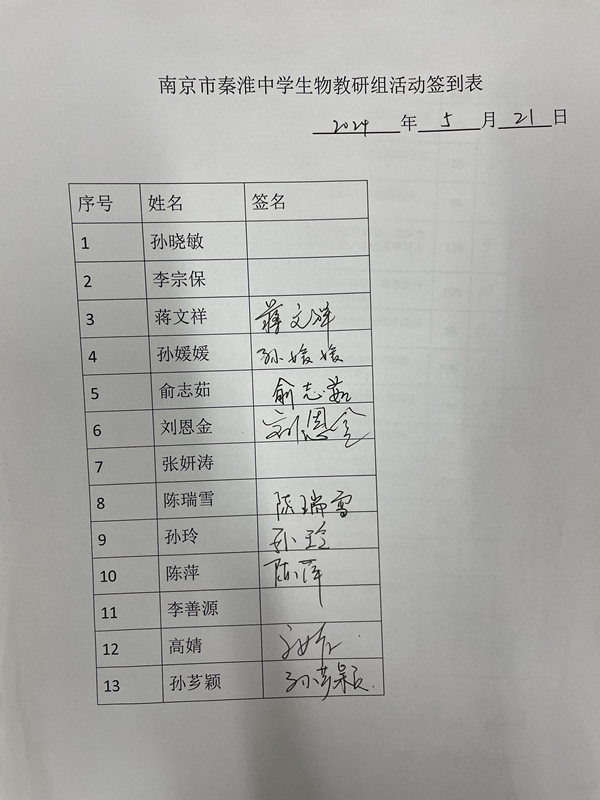 南京市秦淮中学生物教研组活动签到表
2024 年 5 月 21 日
序号 姓名 签名
1 孙晓敏
2 李宗保
3 蒋文祥 蒋文祥
4 孙媛媛 孙媛媛
5 俞志茹 俞志茹
6 刘恩金 刘恩金
7 张妍涛
8 陈瑞雪 陈瑞雪
9 孙玲 孙玲
10 陈萍 陈萍
11 李善源
12 高婧 高婧
13 孙芗颖 孙芗颖